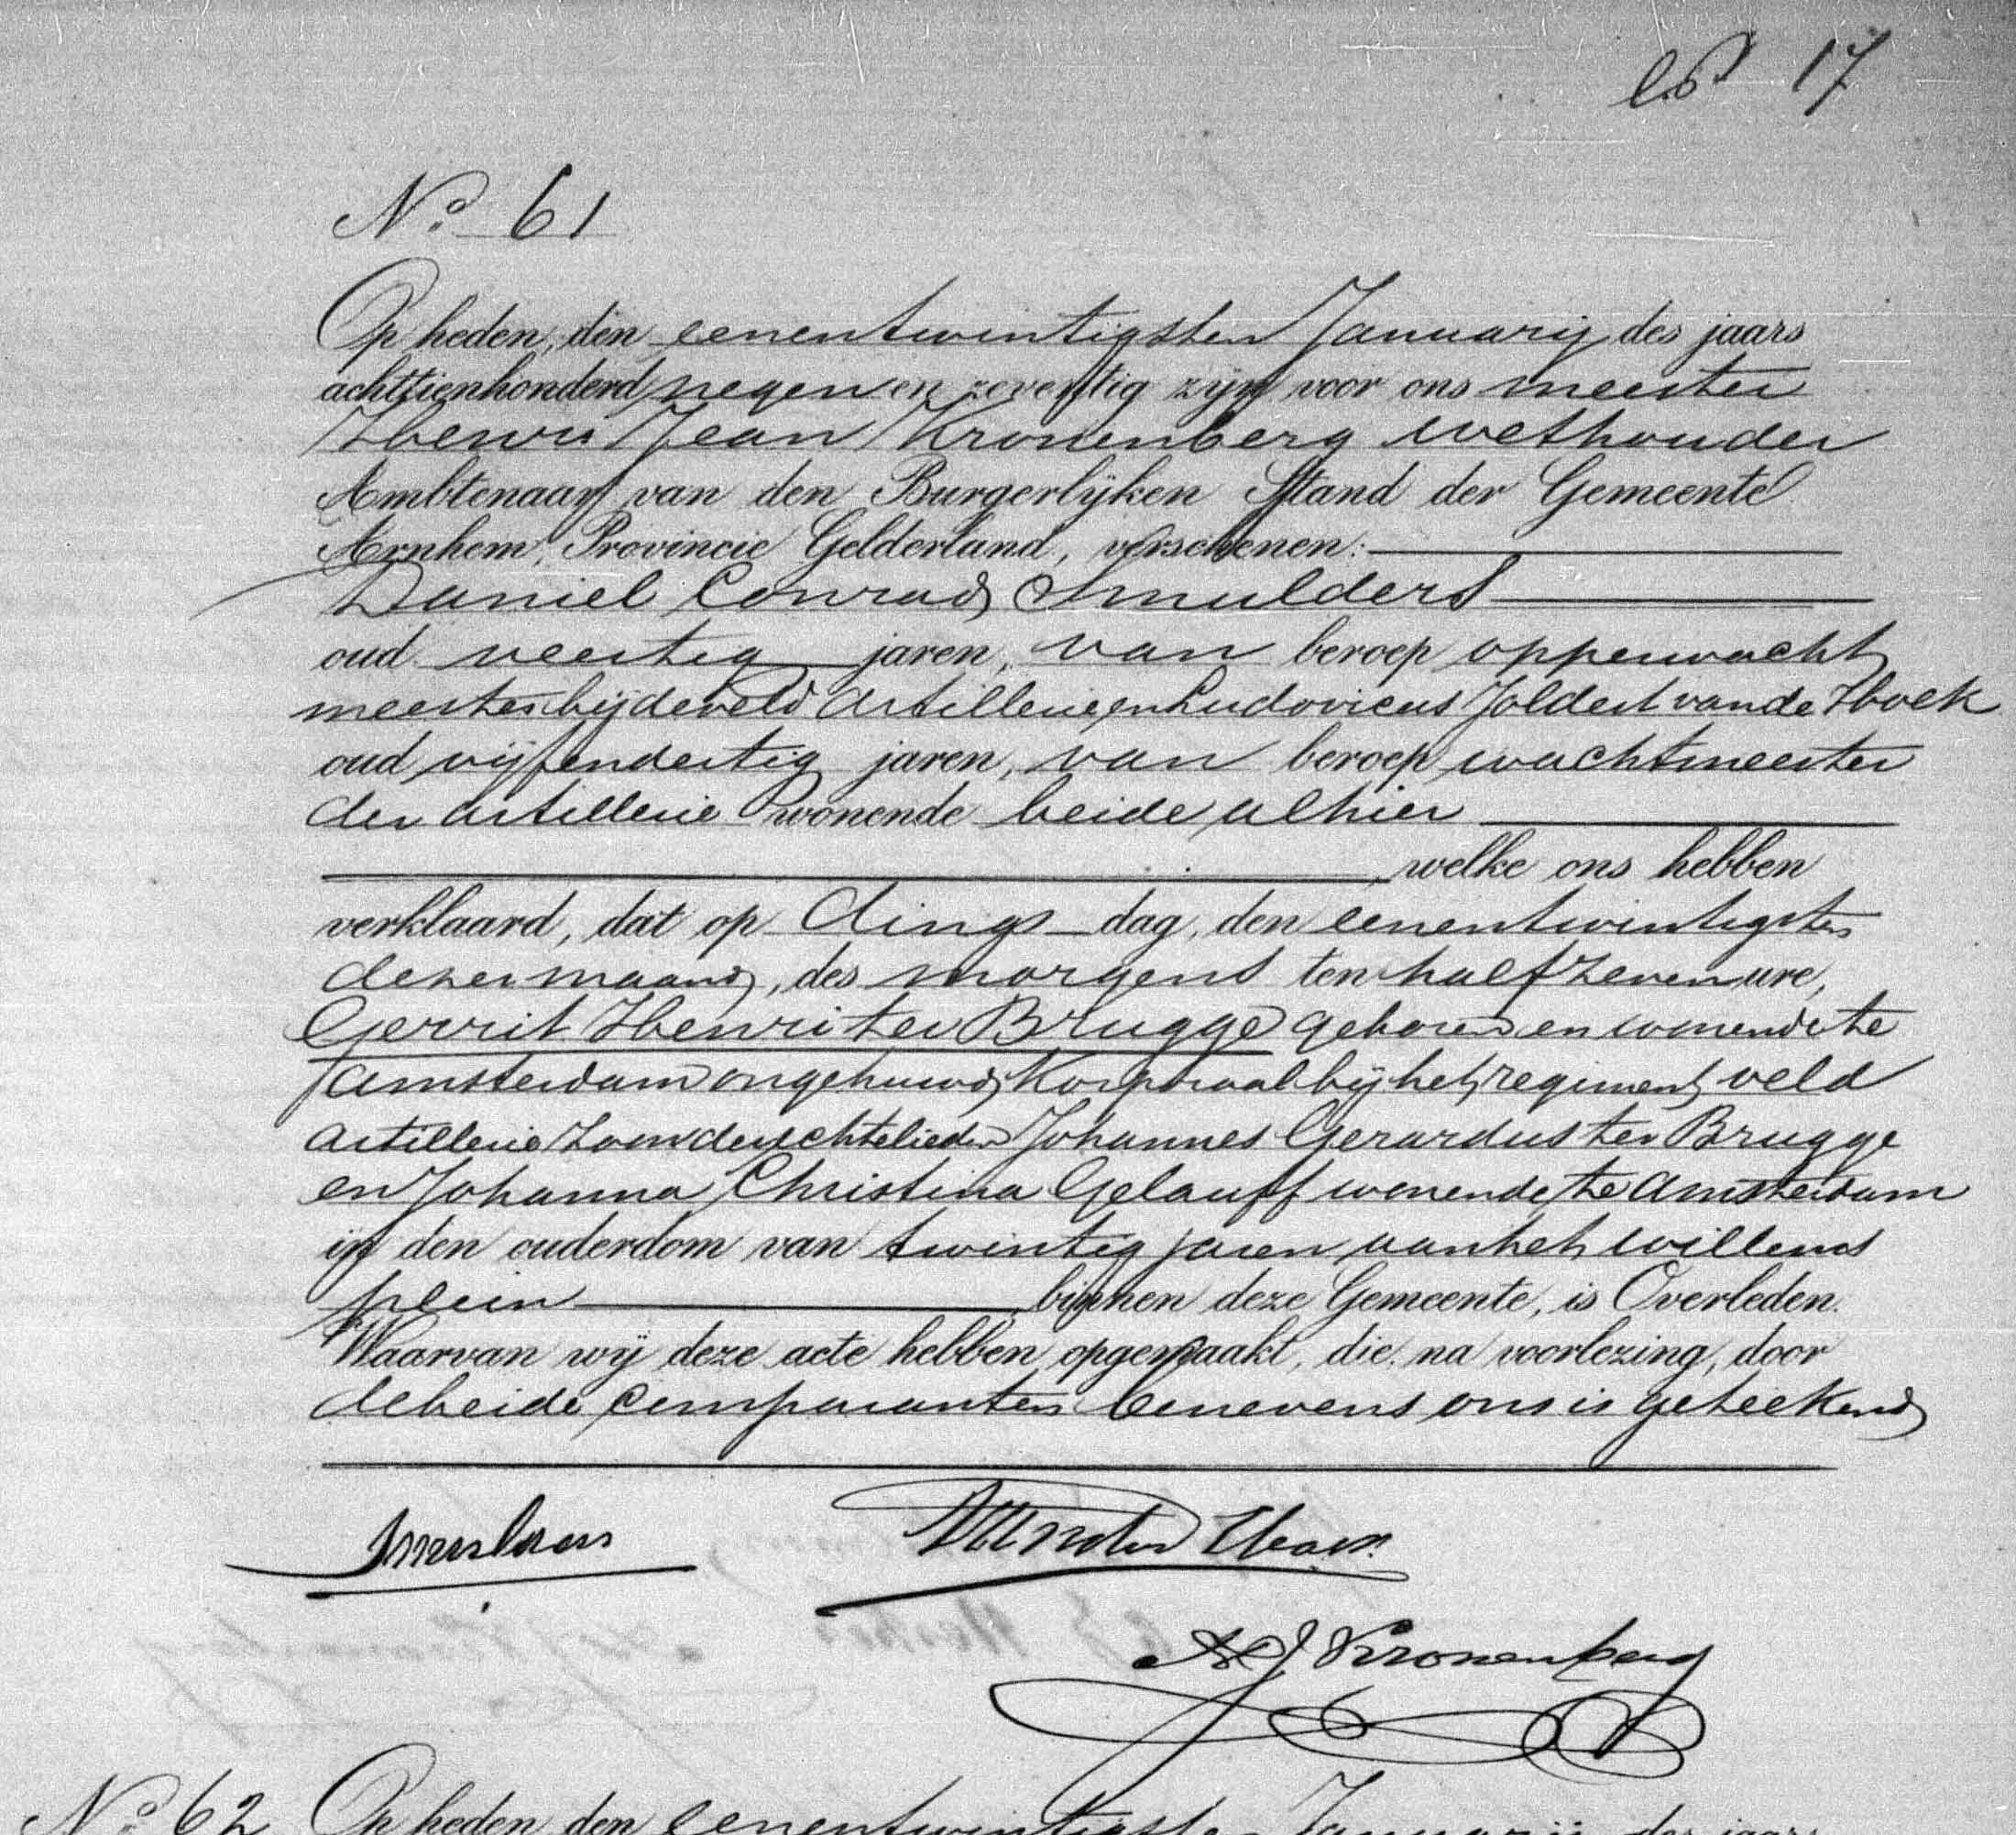 17
No. 61
Op heden, den eenentwintigsten Januarij des jaars
achttienhonderd negen en zeventig zijn voor ons meester
Henri Jean Kronenberg wethouder
Ambtenaar van den Burgerlijken Stand der Gemeente
Arnhem, Provincie Gelderland, verschenen:
Daniel Conrad Smulders
oud veertig jaren, van beroep opperwacht
meester bij de veld Artillerie, en Ludovicus Joldert van de Hoek
oud vijfendertig jaren, van beroep wachtmeester
der artillerie wonende beide alhier
welke ons hebben
verklaard, dat op dings dag, den eenentwintigsten
dezer maand, des morgens ten half zeven ure,
Gerrit Henri ter Brugge geboren en wonende te
Amsterdam ongehuwd, Korporaal bij het regiment veld
artillerie zoon der echtelieden Johannes Gerardus ter Brugge
en Johanna Christina Gelauff wonende te Amsterdam
in den ouderdom van twintig jaren aan het willems
plein binnen deze Gemeente, is Overleden.
Waarvan wij deze acte hebben opgemaakt, die, na voorlezing, door
de beide comparanten benevens ons is geteekend
Smulders
HJ Kronenberg
No. 62 Op heden, den eenentwintigsten Januarij des jaars